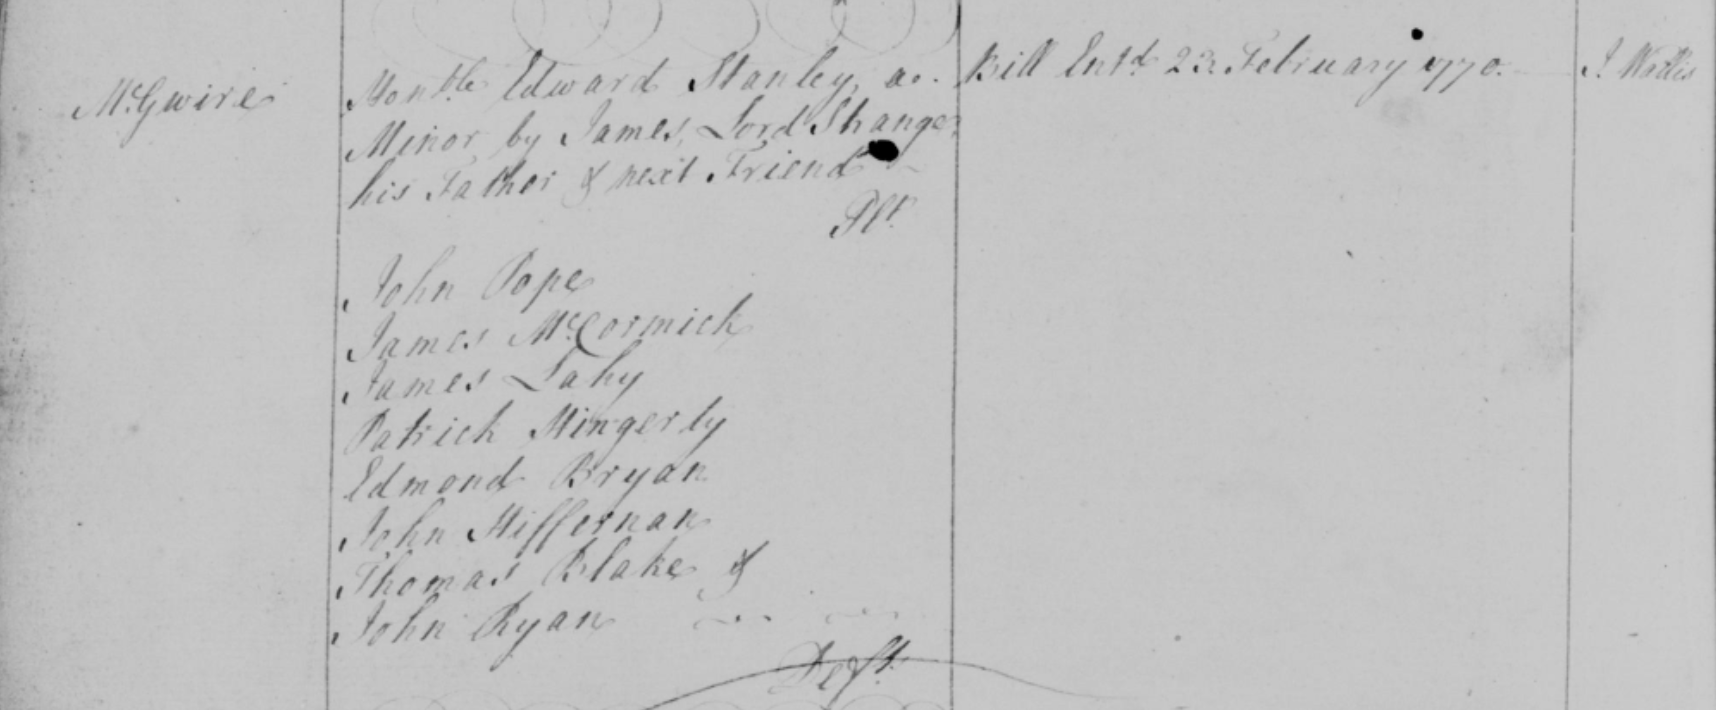 McGwire
Honble Edward Stanley, a
Minor by James, Lord Strange
his Father & next Friend
Plt.
John Pope
James McCormick
James Lahy
Patrick Hingerty
Edmond Bryan
John Hiffernan
Thomas Blake &
John Ryan
Defts.
Bill Entd. 23 February 1770.
J. Wallis